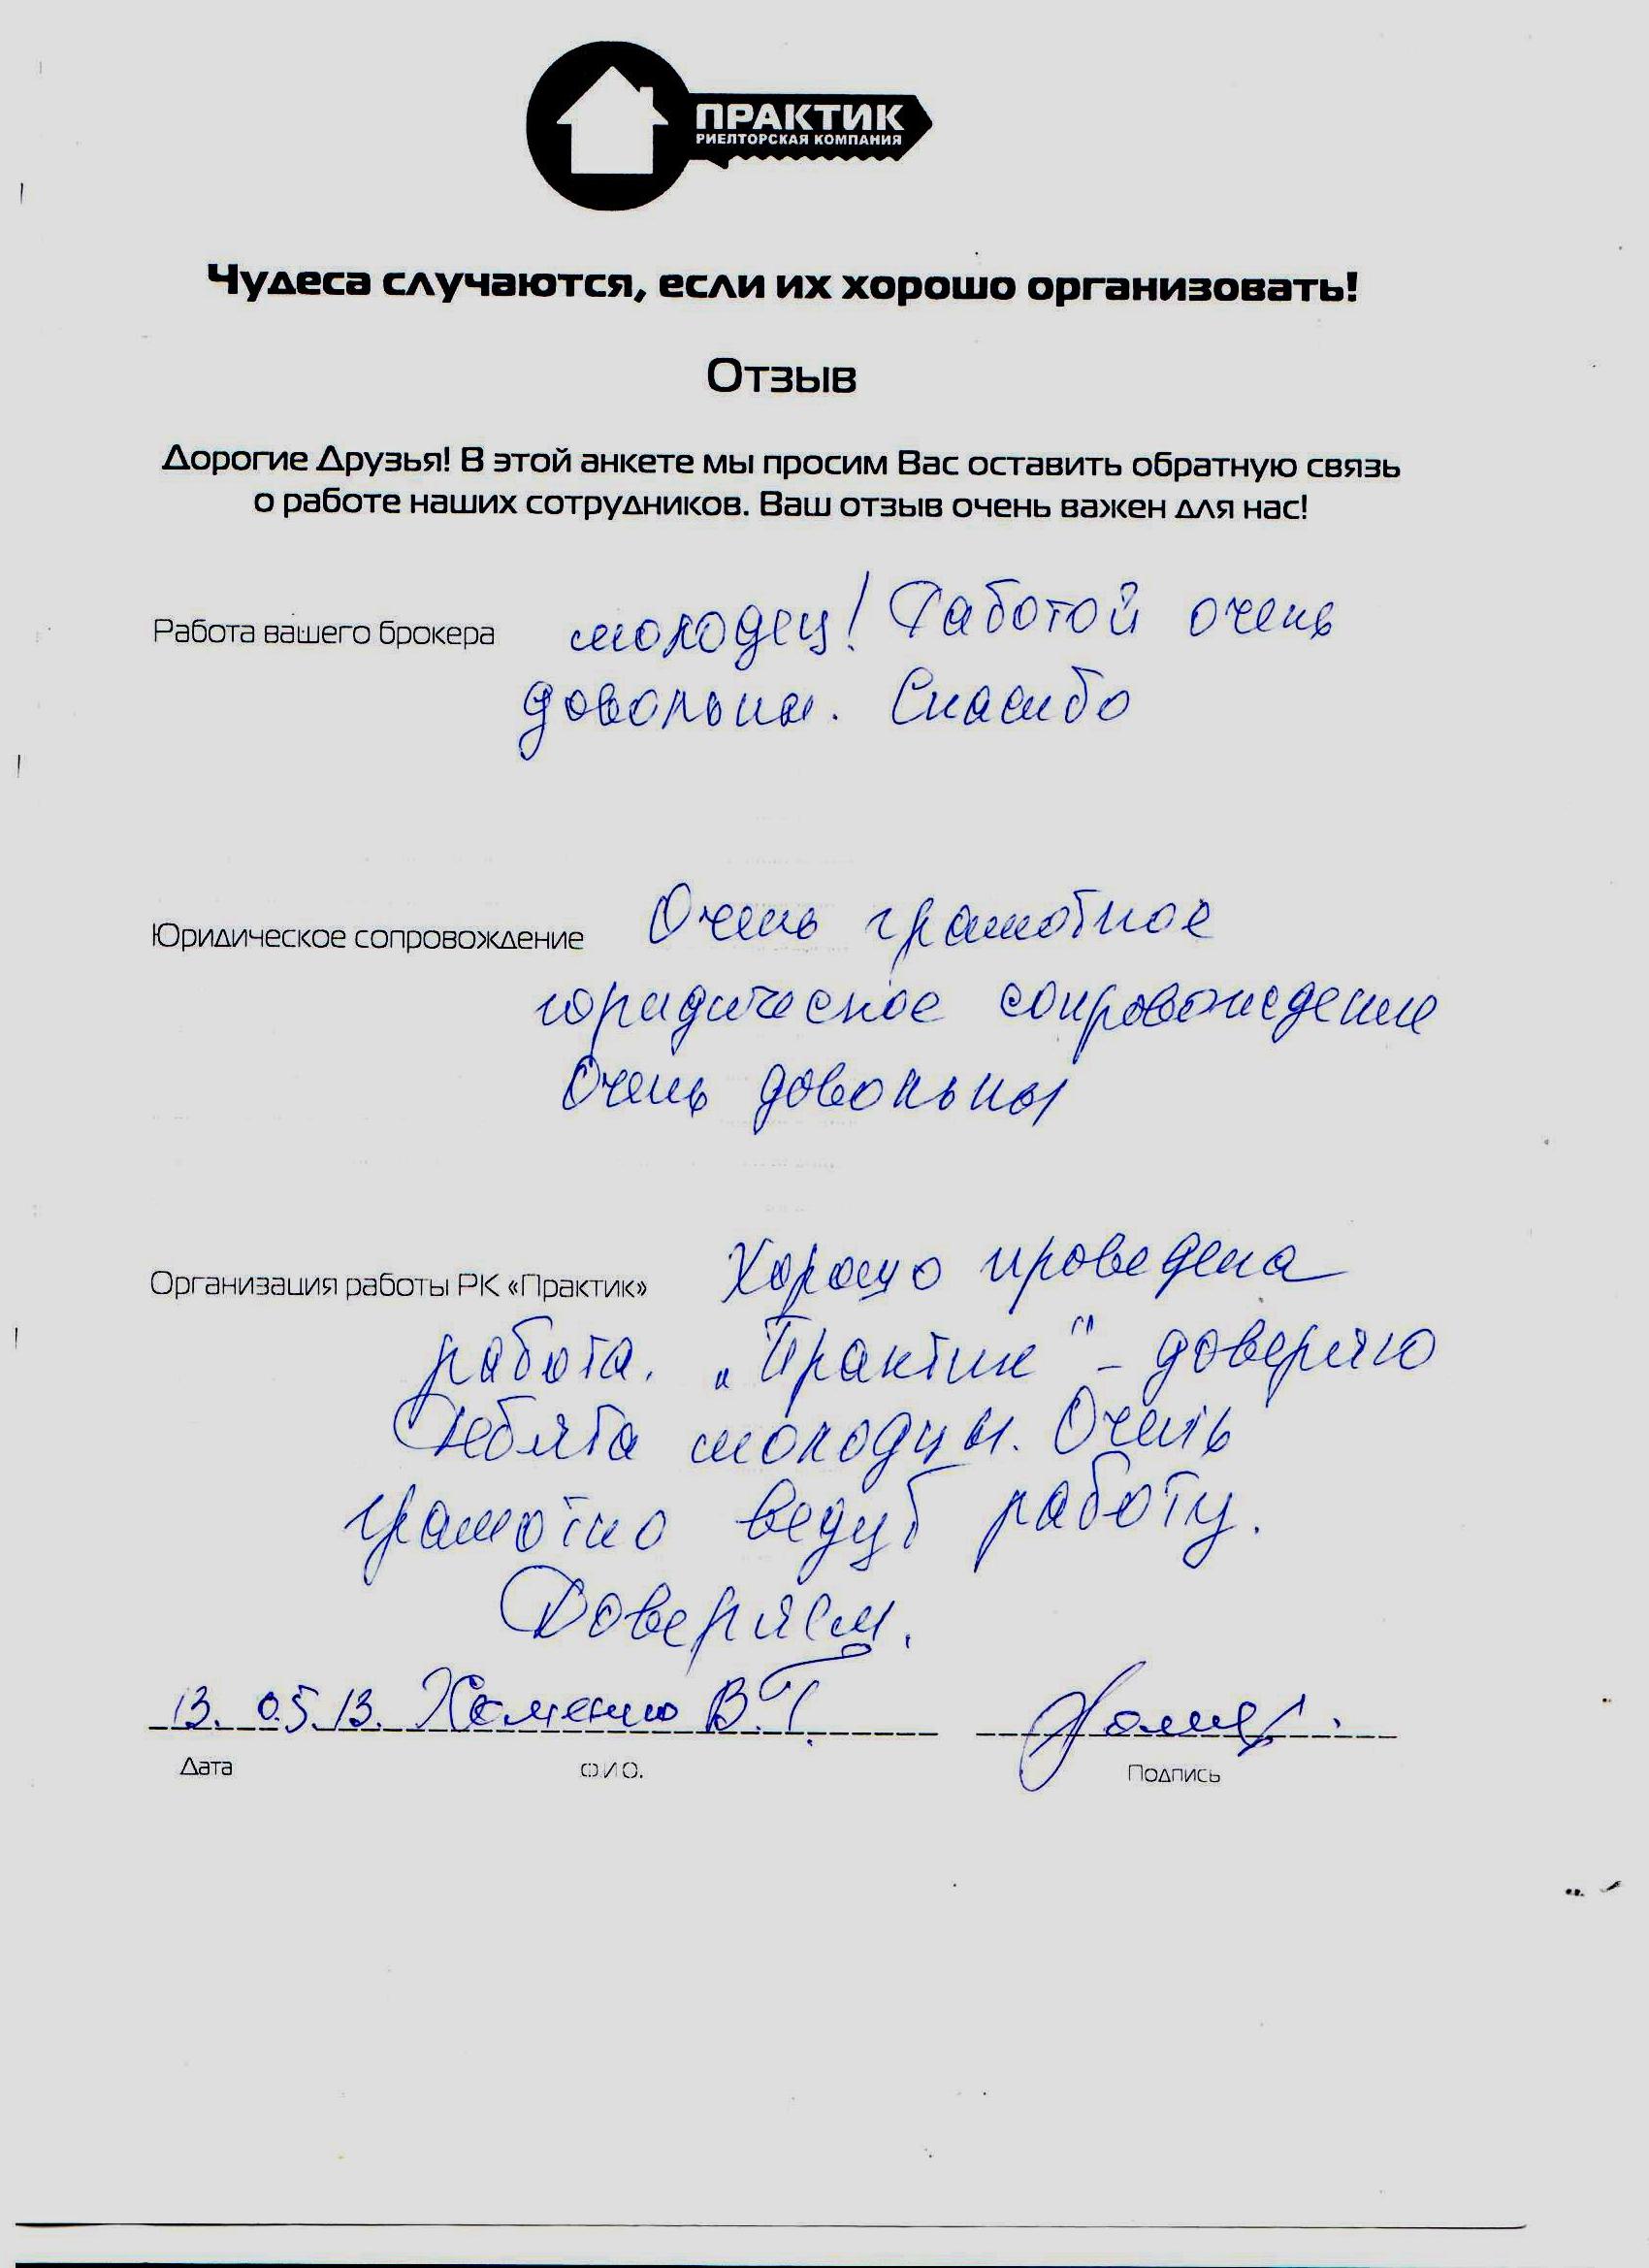 ПРАКТИК
РИЕЛТОРСКАЯ КОМПАНИЯ
Чудеса случаются, если их хорошо организовать!
Отзыв
Дорогие Друзья! В этой анкете мы просим Вас оставить обратную связь
о работе наших сотрудников. Ваш отзыв очень важен для нас!
Работа вашего брокера молодец! Работой очень
довольны. Спасибо
Юридическое сопровождение Очень грамотное
юридическое сопровождение
Очень довольны
Организация работы РК «Практик» Хорошо проведена
работа. „Практик" - доверяю
Ребята молодцы. Очень
грамотно ведут работу.
Доверяем.
13.05.13. Хоменко В.Г.
Дата Ф.И.О. Подпись